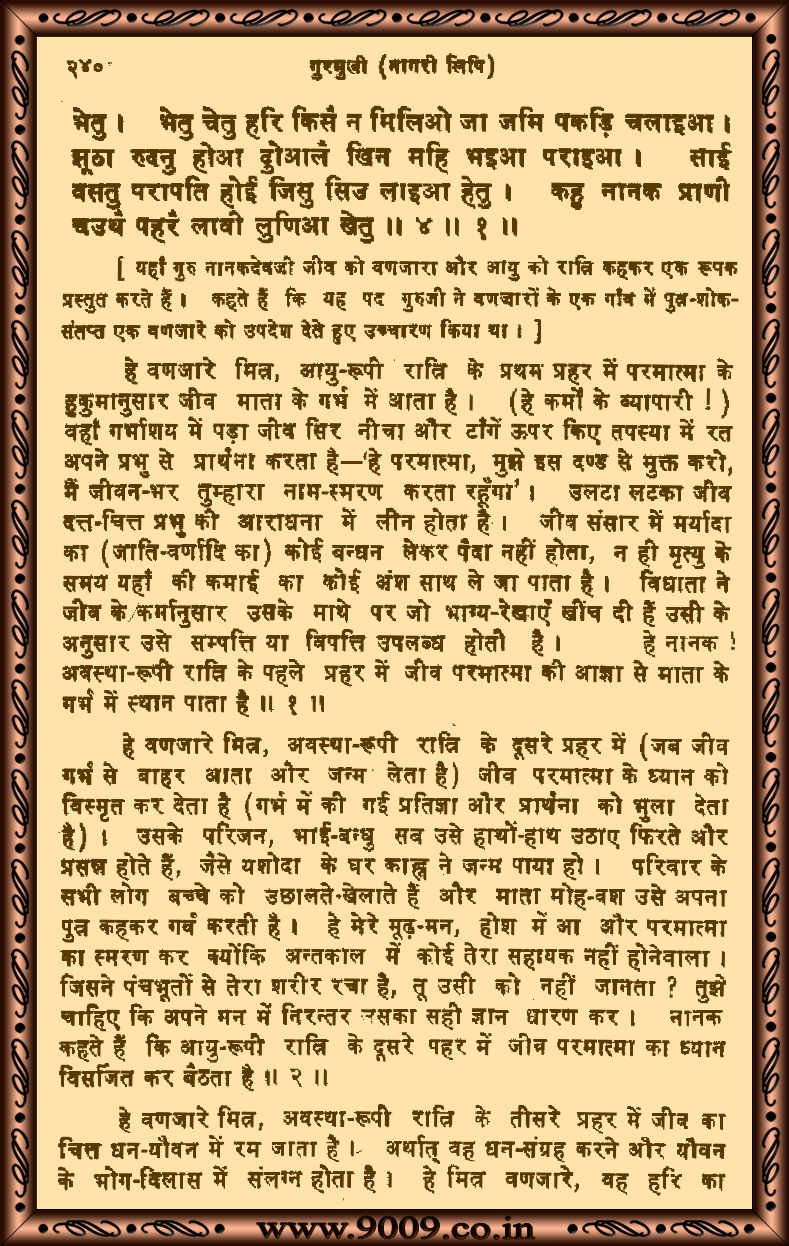 २४०      गुरमुखी (नागरी लिपि)
भेतु ।   भेतु चेतु हरि किसै न मिलिओ जा जमि पकड़ि चलाइआ ।
झूठा रुदनु होआ दुोआलै खिन महि भइआ पराइआ ।   साई
वसतु परापति होई जिसु सिउ लाइआ हेतु ।   कहु नानक प्राणी
चउथै पहरै लावी लुणिआ खेतु ॥ ४ ॥ १ ॥
[ यहाँ गुरु नानकदेवजी जीव को वणजारा और आयु को रात्रि कहकर एक रूपक
प्रस्तुत करते हैं ।   कहते हैं कि यह पद गुरुजी ने वणजारों के एक गाँव में पुत्र-शोक-
संतप्त एक वणजारे को उपदेश देते हुए उच्चारण किया था । ]
हे वणजारे मित्र, आयु-रूपी रात्रि के प्रथम प्रहर में परमात्मा के
हुकुमानुसार जीव माता के गर्भ में आता है ।   (हे कर्मों के व्यापारी !)
वहाँ गर्भाशय में पड़ा जीव सिर नीचा और टाँगें ऊपर किए तपस्या में रत
अपने प्रभु से प्रार्थना करता है—‘हे परमात्मा, मुझे इस दण्ड से मुक्त करो,
मैं जीवन-भर तुम्हारा नाम-स्मरण करता रहूँगा’ ।   उलटा लटका जीव
दत्त-चित्त प्रभु की आराधना में लीन होता है ।   जीव संसार में मर्यादा
का (जाति-वर्णादि का) कोई बन्धन लेकर पैदा नहीं होता, न ही मृत्यु के
समय यहाँ की कमाई का कोई अंश साथ ले जा पाता है ।   विधाता ने
जीव के कर्मानुसार उसके माथे पर जो भाग्य-रेखाएँ खींच दी हैं उसी के
अनुसार उसे सम्पत्ति या विपत्ति उपलब्ध होती है ।   हे नानक !
अवस्था-रूपी रात्रि के पहले प्रहर में जीव परमात्मा की आज्ञा से माता के
गर्भ में स्थान पाता है ॥ १ ॥
हे वणजारे मित्र, अवस्था-रूपी रात्रि के दूसरे प्रहर में (जब जीव
गर्भ से बाहर आता और जन्म लेता है) जीव परमात्मा के ध्यान को
विस्मृत कर देता है (गर्भ में की गई प्रतिज्ञा और प्रार्थना को भुला देता
है) ।   उसके परिजन, भाई-बन्धु सब उसे हाथों-हाथ उठाए फिरते और
प्रसन्न होते हैं, जैसे यशोदा के घर काह्न ने जन्म पाया हो ।   परिवार के
सभी लोग बच्चे को उछालते-खेलाते हैं और माता मोह-वश उसे अपना
पुत्र कहकर गर्व करती है ।   हे मेरे मूढ़-मन, होश में आ और परमात्मा
का स्मरण कर क्योंकि अन्तकाल में कोई तेरा सहायक नहीं होनेवाला ।
जिसने पंचभूतों से तेरा शरीर रचा है, तू उसी को नहीं जानता ? तुझे
चाहिए कि अपने मन में निरन्तर उसका सही ज्ञान धारण कर ।   नानक
कहते हैं कि आयु-रूपी रात्रि के दूसरे पहर में जीव परमात्मा का ध्यान
विसर्जित कर बैठता है ॥ २ ॥
हे वणजारे मित्र, अवस्था-रूपी रात्रि के तीसरे प्रहर में जीव का
चित्त धन-यौवन में रम जाता है ।   अर्थात् वह धन-संग्रह करने और यौवन
के भोग-विलास में संलग्न होता है ।   हे मित्र वणजारे, वह हरि का
www.9009.co.in